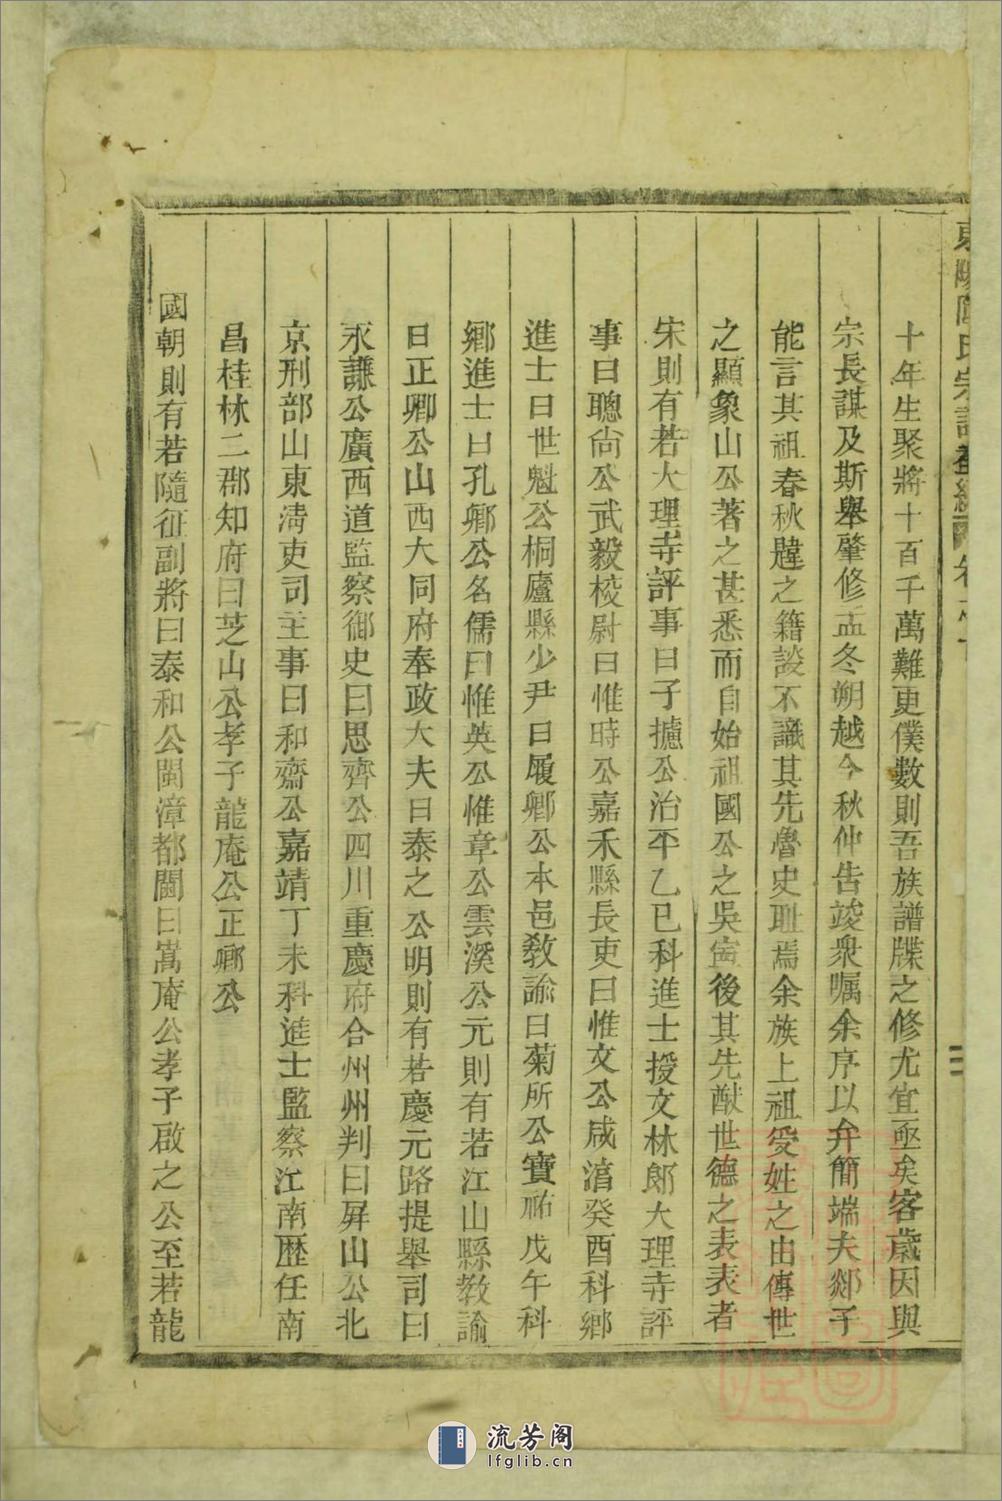 十年生聚將十百千萬難更僕數則吾族譜牒之修尤宜亟矣客歲因與
宗長謀及斯舉肇修孟冬朔越今秋仲告竣衆嘱余序以弁簡端夫郯子
能言其祖春秋韙之籍談不識其先魯史耻焉余族上祖受姓之由傳世
之顯象山公著之甚悉而自始祖國公之吳寗後其先猷世德之表表者
宋則有若大理寺評事曰子攄公治平乙巳科進士授文林郎大理寺評
事曰聰尙公武毅校尉曰惟時公嘉禾縣長吏曰惟文公咸湻癸酉科鄉
進士曰世魁公桐廬縣少尹曰履卿公本邑敎諭曰菊所公寶祐戊午科
鄉進士曰孔鄉公名儒曰惟英公惟章公雲溪公元則有若江山縣敎諭
曰正卿公山西大同府奉政大夫曰泰之公明則有若慶元路提舉司曰
永謙公廣西道監察御史曰思齊公四川重慶府合州州判曰屏山公北
京刑部山東淸吏司主事曰和齋公嘉靖丁未科進士監察江南歷任南
昌桂林二郡知府曰芝山公孝子龍庵公正鄉公
國朝則有若隨征副將曰泰和公閩漳都閫曰嵩庵公孝子啟之公至若龍
東陽 氏宗譜 卷之
二
流芳阁
lfglib.cn